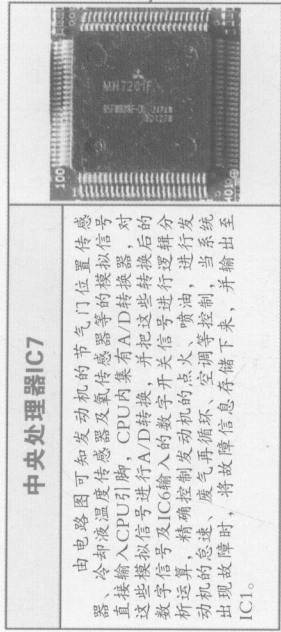 中央处理器IC7
由电路图可知发动机的节气门位置传感
器、冷却液温度传感器及氧传感器等的模拟信号
直接输入CPU引脚，CPU内集有A/D转换器，对
这些模拟信号进行A/D转换，并把这些转换后的
数字信号及IC6输入的数字开关信号进行逻辑分
析运算，精确控制发动机的点火、喷油，进行发
动机的怠速、废气再循环、空调等控制，当系统
出现故障时，将故障信息存储下来，并输出至
IC1。
MH7201F
JAPAN
100